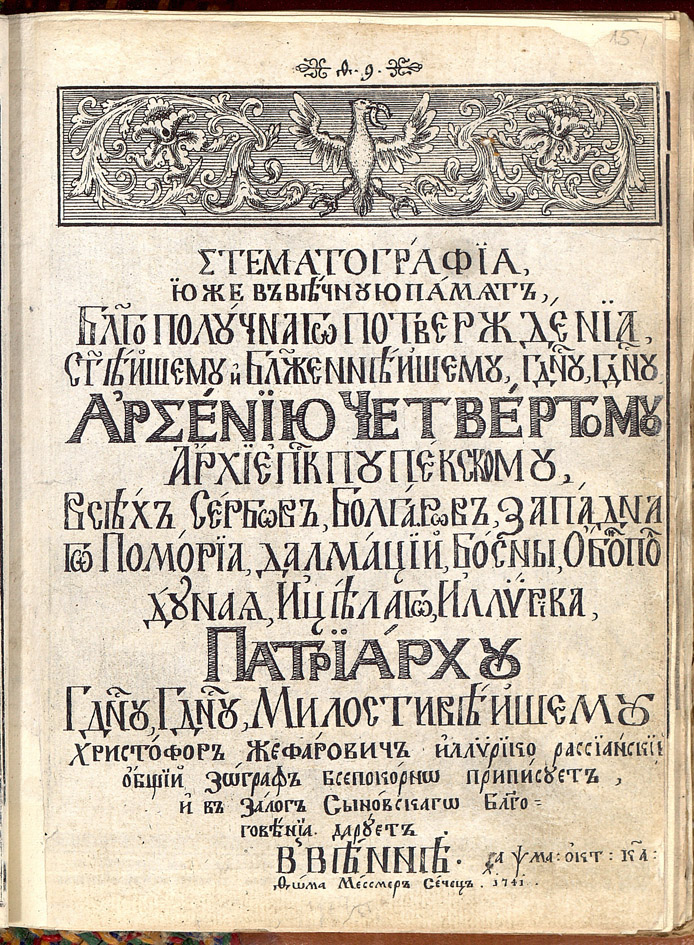 СТЕМАТОГРА́ФЇА,
Ю҆́ЖЕ ВЪ ВѢ́ЧНꙊЮ ПА́МѦТЪ,
БЛГ҃ОПОЛꙊ́ЧНАГѠ ПОТВЕРЖДЕ́НЇѦ,
СТ҃ѢЙШЕМꙊ и҆ БЛ҃ЖЕННѢЙШЕМꙊ, ГДⷭ҇НꙊ, ГДⷭ҇НꙊ,
А҆РСЕ́НЇЮ ЧЕТВЕ́РТОМꙊ
А҆РХЇЕПⷭ҇КПꙊ ПЕ́КСКОМꙊ,
ВСѢ́ХЪ СЕ́РБѠВЪ, БОЛГА́РѠВЪ, ЗА́ПАДНА
ГѠ ПОМО́РЇА, ДАЛМА́ЦЇИ, БО́СНЫ, О҆БОПО́
ДꙊНАѦ, И ЦѢ́ЛАГѠ, ИЛЛѴ́РЇКА,
ПАТРЇА́РХꙊ
ГДⷭ҇НꙊ, ГДⷭ҇НꙊ, МИЛОСТИВѢЙШЕМꙊ
ХРИСТО́ФОРЪ ЖЕФА́РОВИЧЪ и҆ллѵ́рїко рассїа́нскїй
ѻ҆́бщїй зѡ́графъ всепоко́рнѡ припи́сꙋетъ,
и҆ въ зало́гъ сыно́вскагѡ бл҃го=
гове́нїа дарꙋ́етъ.
В ВІЕ́ННѢ. ҂а ѱ҃ма: окт: к҃а:
Ѳѡма Мессмеръ Сѣчецъ. 1741.